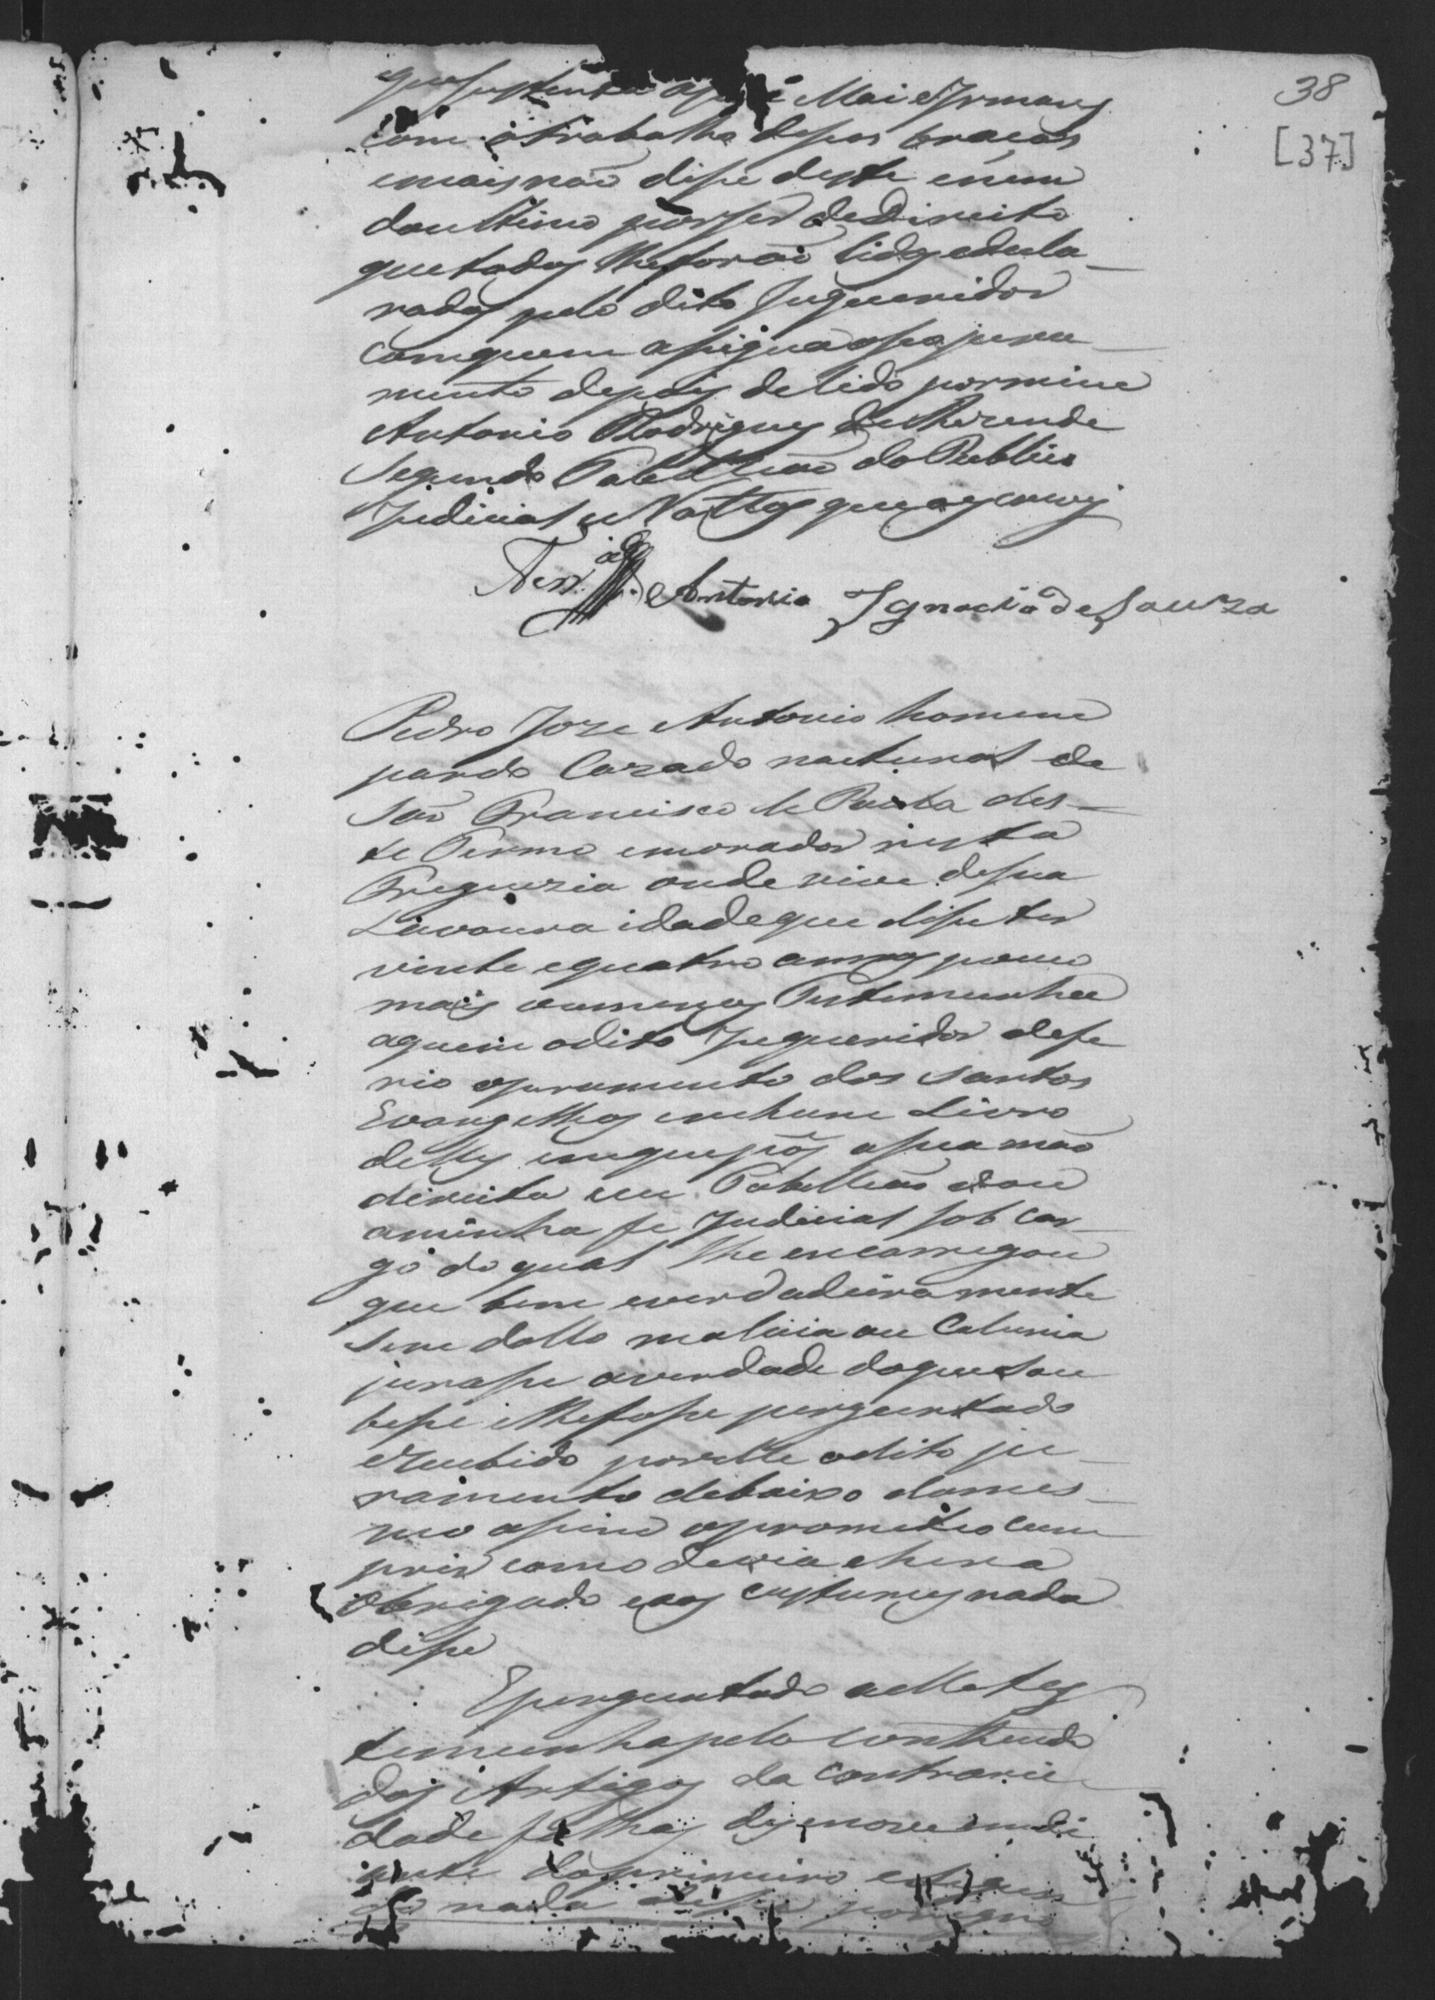 38
[37]
que sustenta a sua Mai e Irmans
com o trabalho de seos braços
e mais não disse deste enem
do ultimo por ser de Direito
que todos lhe forão lidos e decla-
rados pelo dito Inqueridor
com quem assignao seo jura-
mento depois de lido por mim
Antonio Rodrigues de Rezende
Segundo Tabellião do Publico
Judicial e Nottas que o escrevi
Antonio Ignacio de Souza
Pedro Joze Antonio homem
pardo Cazado natural de
São Francisco de Paula des-
te Termo e morador nesta
Freguezia onde vive de sua
Lavoura idade que disse ter
vinte e quatro annos pouco
mais ou menos Testemunha
aquem o dito Inqueridor defe
rio o juramento dos Santos
Evangelhos em hum Livro
delles em que pôs a sua mão
direita eu Tabellião dou
a minha fe Judicial sob car-
go do qual lhe encarregou
que bem e verdadeiramente
sem dollo malicia ou Calunia
jurasse a verdade do que sou
besse e lhe fosse perguntado
e recebido por elle o dito ju-
ramento debaixo do mes-
mo assim o prometteo cum
prir como devia e hera
Obrigado e aos custumes nada
disse
E perguntado a elle tes
temunha pelo contheudo
dos Artigos da Contrarie-
dade folhas desenove emdi
ante do primeiro e segun
do nada disse por